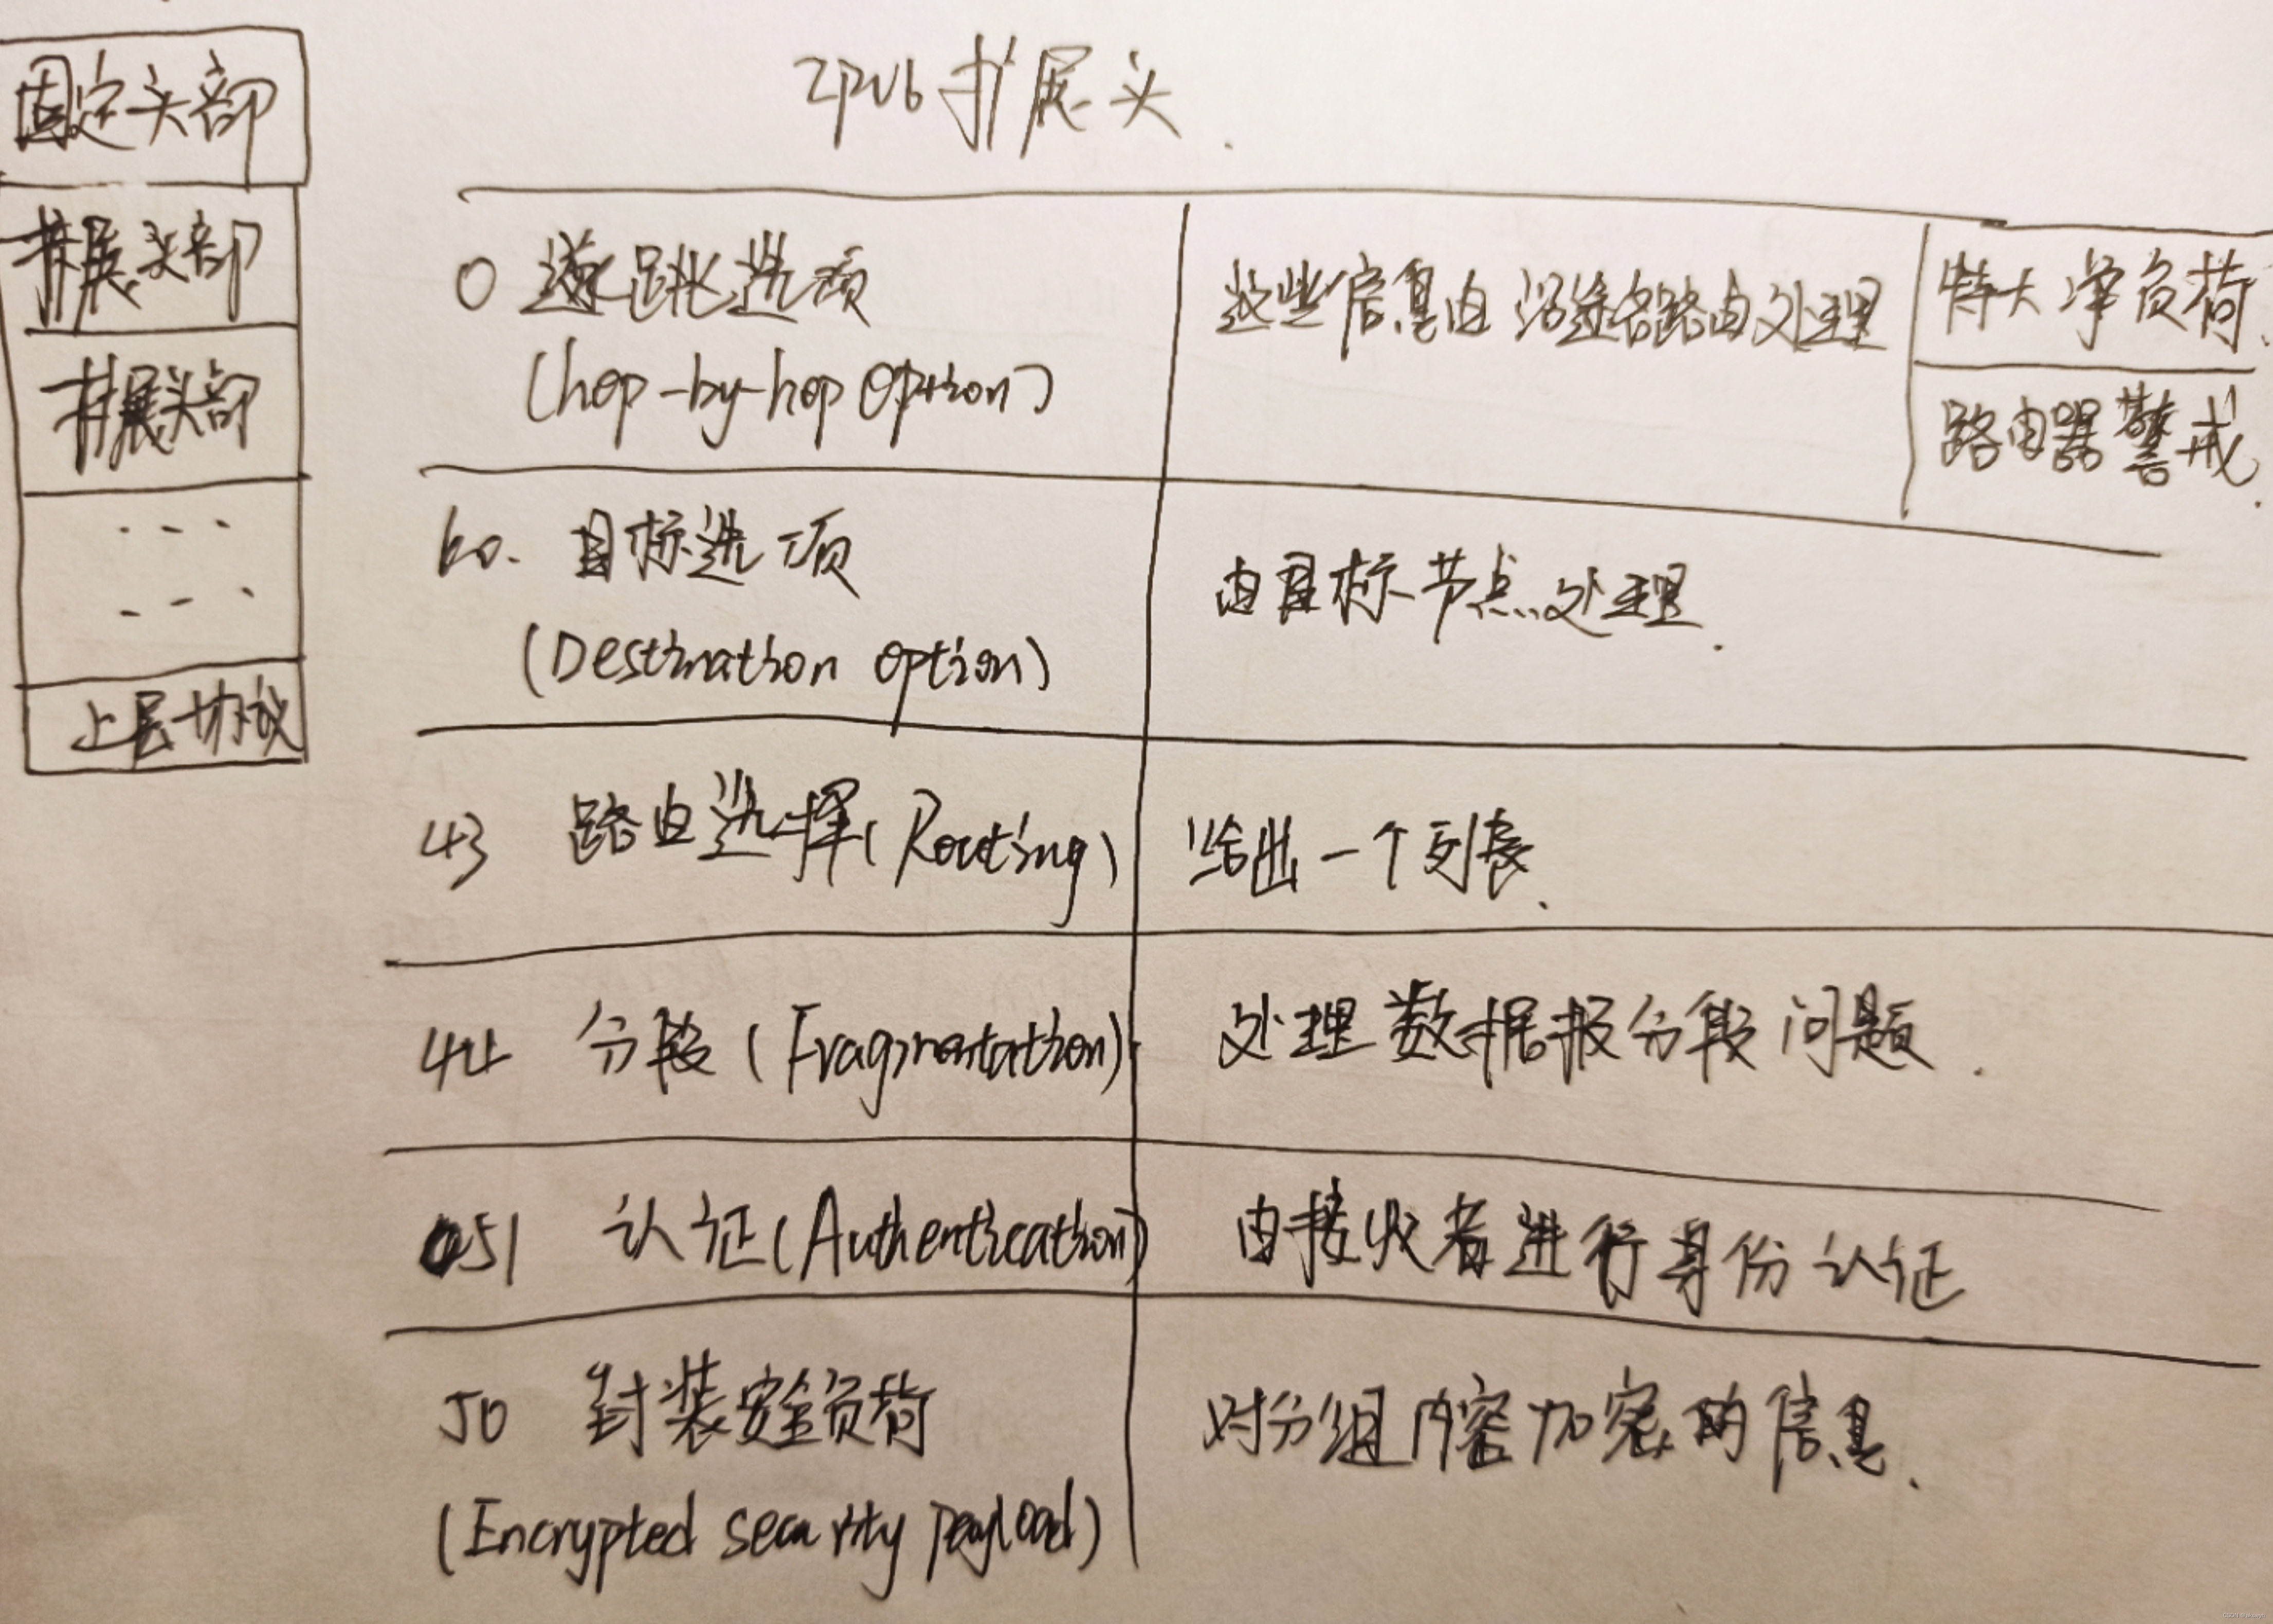 IPV6扩展头.
固定头部
扩展头部
扩展头部
上层协议
0 逐跳选项
(hop-by-hop option)
这些信息由沿途各路由处理
特大净负荷.
路由器警戒.
60. 目标选项
(Destination option)
由目标节点处理.
43 路由选择(Routing)
给出一个列表.
44 分段(Fragmentation)
处理数据报分段问题.
51 认证(Authentication)
由接收者进行身份认证
50 封装安全负荷
(Encrypted security payload)
对分组内容加密的信息.